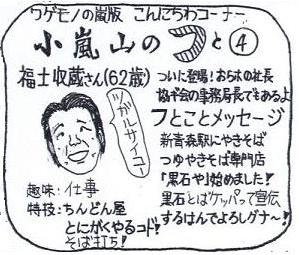 ワゲモノの嵐版 こんにちわコーナー
小嵐山のフと④
福士収蔵さん(62歳)
ツガルサイコー
趣味:仕事
特技:ちんどん屋
とにがくやるコド!
そば打ち!
ついに登場!お山の社長
協ギ会の事務局長でもあるよ
フとことメッセージ
新青森駅にやきそば
つゆやきそば専門店
「黒石や」始めました!
黒石とばケッパって宣伝
するはんでよろしグナ〜!